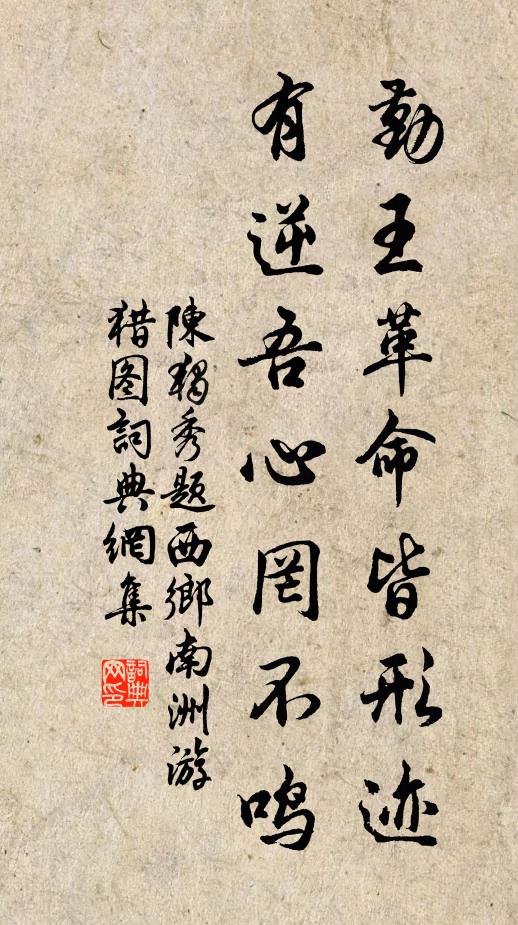 勤王革命皆形迹
有逆吾心罔不鸣
陳獨秀题西鄉南洲游
猎图詞典網集
詞典网印